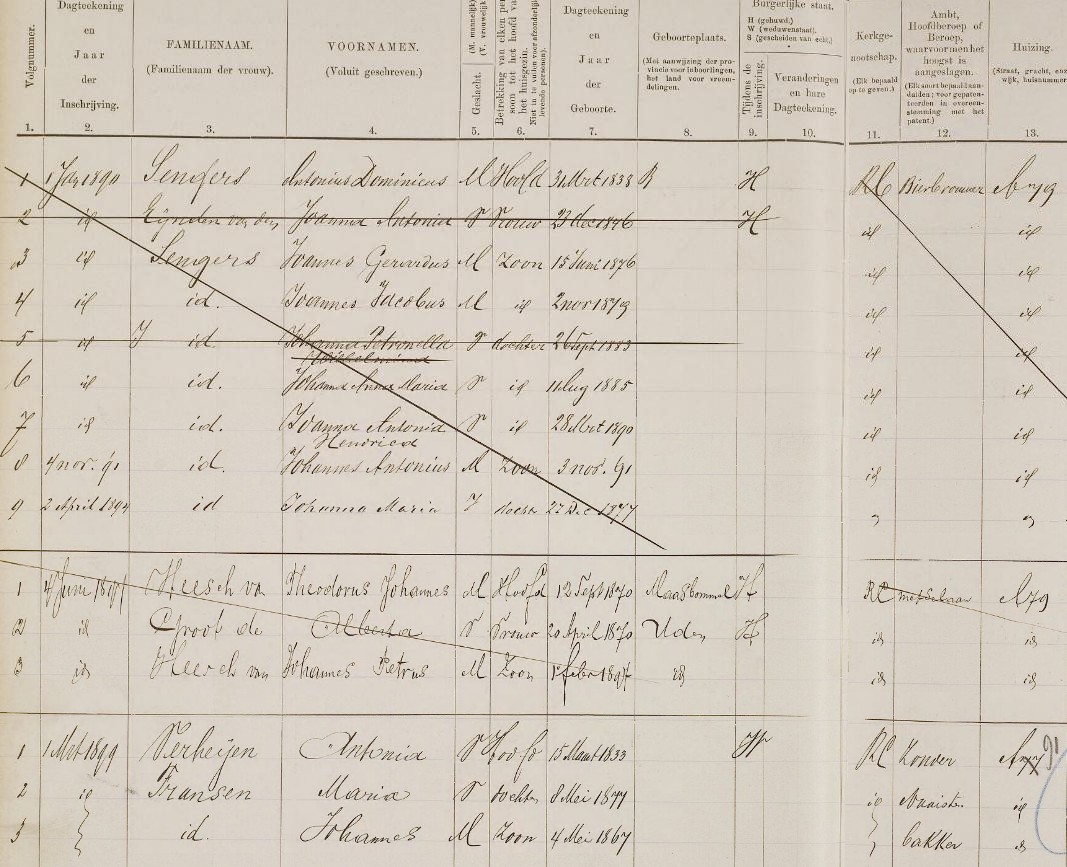 Volgnummer.
Dagteekening
en
Jaar
der
Inschrijving.
FAMILIENAAM.
(Familienaam der vrouw).
VOORNAMEN.
(Voluit geschreven.)
(M. mannelijk)
(V. vrouwelijk
Geslacht.
Betrekking van elken per-
soon tot het hoofd va
het huisgezin.
Dagteekening
en
Jaar
der
Geboorte.
Geboorteplaats.
(Met aanwijzing der pro-
vincie voor inboorlingen,
het land voor vreem-
delingen.
Burgerlijke staat.
H (gehuwd.)
W (weduwenstaat).
S (gescheiden van echt.)
Tijdens de
inschrijving.
Veranderingen
en hare
Dagteekening.
Kerkge-
nootschap.
(Elk bepaald
op te geven.)
Ambt,
Hoofdberoep of
Beroep,
waarvoor men het
hoogst is
aangeslagen.
(Elk amt bepaald aan-
duiden; voor gepaten-
teerden in overeen-
stemming met het
patent.)
Huizing.
(Straat, gracht, enz
wijk, huisnummer
1. 2. 3. 4. 5. 6. 7. 8. 9. 10. 11. 12. 13.
1 1 Jan 1890 Sengers Antonius Dominicus M Hoofd 31 Mrt 1838 H RC Bierbrouwer
2 id Eijnden van den Joanna Antonia V Vrouw 23 dec 1846 H id id
3 id Sengers Joannes Gerardus M Zoon 15 Juni 1876 id id
4 id id. Joannes Jacobus M id 2 nov 1879 id id
5 id id. Johanna Petronella V dochter 26 Sept 1883 id id
Wilhelmina
6 id id. Johanna Anna Maria V id 11 Aug 1885 id id
7 id id. Joanna Antonia V id 28 Mrt 1890 id id
Hendrica
8 4 nov. 91 id. Johannes Antonius M Zoon 3 nov. 91 id id
9 2 April 1894 id Johanna Maria V docht 27 Dec 1877
1 4 Juni 1897 Heesch van Theodorus Johannes M Hoofd 12 Sept 1870 Maasbommel H RC metselaar A79
2 id Groot de Alberta V Vrouw 20 April 1870 Uden H id id
3 id Heesch van Johannes Petrus M Zoon 1 febr 1897 id id id
1 1 Mrt 1899 Verheijen Antonia V Hoofd 15 Maart 1833 W RC Zonder 91
2 id Fransen Maria V dochter 8 Mei 1877 id Naaister id
3 id. Johannes M Zoon 4 Mei 1867 bakker id